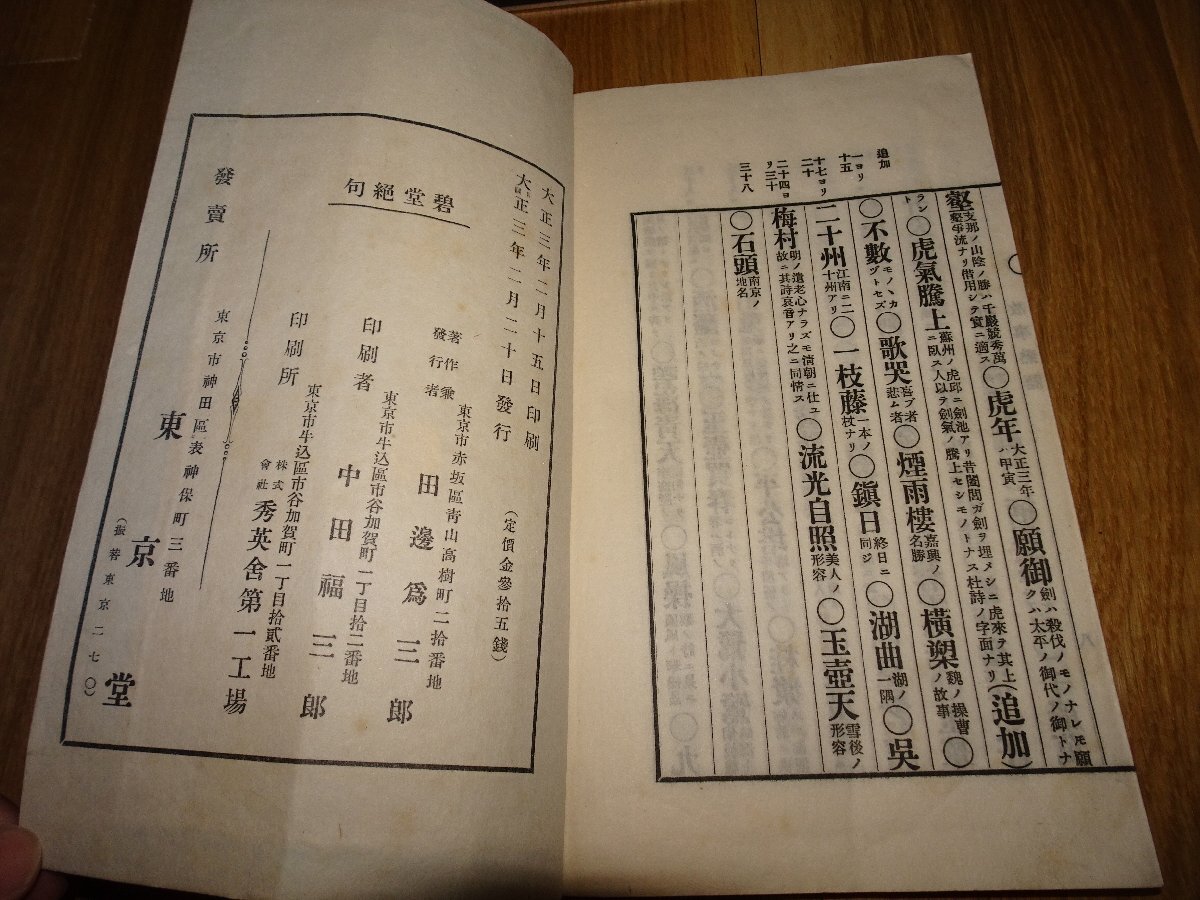 追加
一ヨリ
十五
十七ヨリ
二十
二十四ヨ
リ三十
三十八
壑 支那ノ山陰ノ勝ハ千巖競秀萬壑爭流ナリ借用シテ實ニ適ス ◯虎年 大正三年ハ甲寅 ◯願御 劍ハ殺伐ノモノナレモ願クハ太平ノ御代ノ御トナ
ラント ◯虎氣騰上 蘇州ノ虎邱ニ劍池アリ昔闔閭ガ劍ヲ埋メシニ虎來テ其上ニ臥ス人以テ劍氣ノ騰上セシモノトナス杜詩ノ字面ナリ (追加)
◯不數 モノヽカヅトセズ ◯歌哭 喜ブ者悲ム者 ◯煙雨樓 嘉興ノ名勝 ◯橫槊 魏ノ操曹ノ故事 ◯
二十州 江南ニ二十州アリ ◯一枝藤 一本ノ杖ナリ ◯鎭日 終日ニ同ジ ◯湖曲 湖ノ一隅 ◯吳
梅村 明ノ遺老心ナラズモ淸朝ニ仕ユ故ニ其詩哀音アリ之ニ同情ス ◯流光自照 美人ノ形容 ◯玉壺天 雪後ノ形容
◯石頭 南京ノ地名
大正三年二月十五日印刷
大正三年二月二十日發行
碧堂絕句
(定價金參拾五錢)
著作兼發行者
東京市赤坂區靑山高樹町二拾番地
田邊爲三郎
印刷者
東京市牛込區市谷加賀町一丁目拾二番地
中田福三郎
印刷所
東京市牛込區市谷加賀町一丁目拾貳番地
株式會社 秀英舍第一工場
發賣所
東京市神田區表神保町三番地
東京堂
(振替東京二七〇)